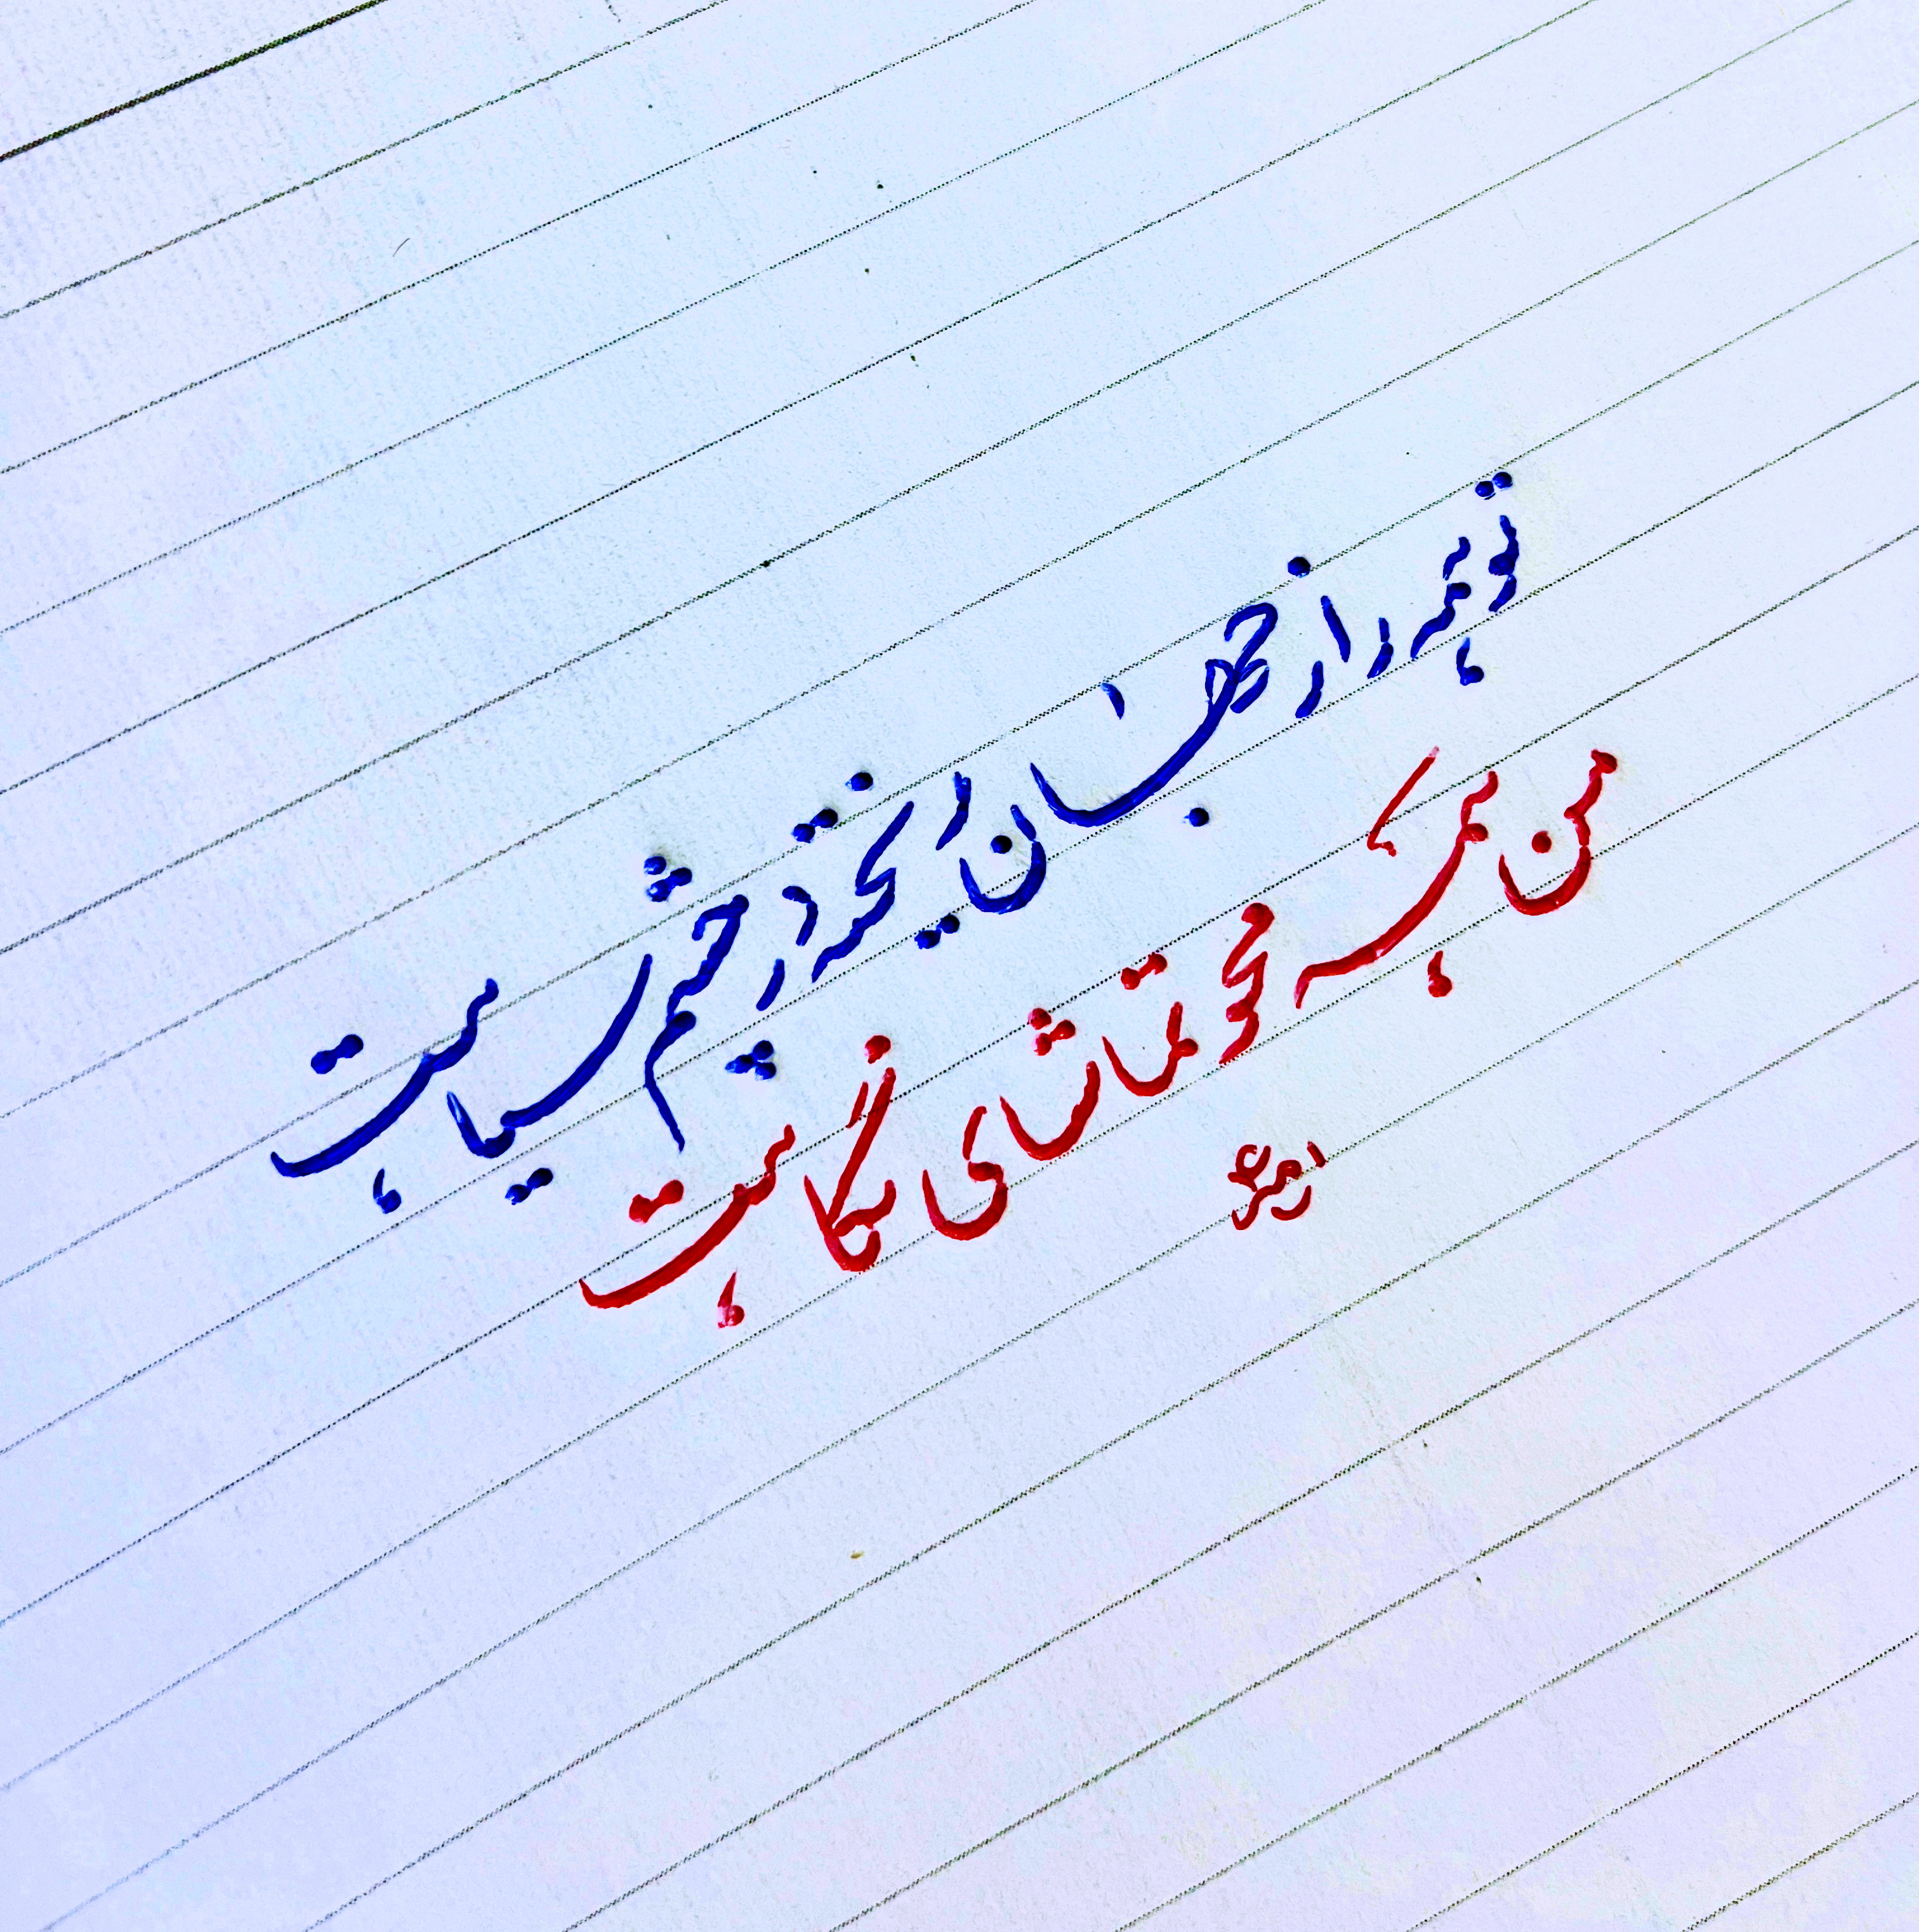 تو همه راز جهان ریخته در چشم سیاهت
من همه محو تماشای نگاهت